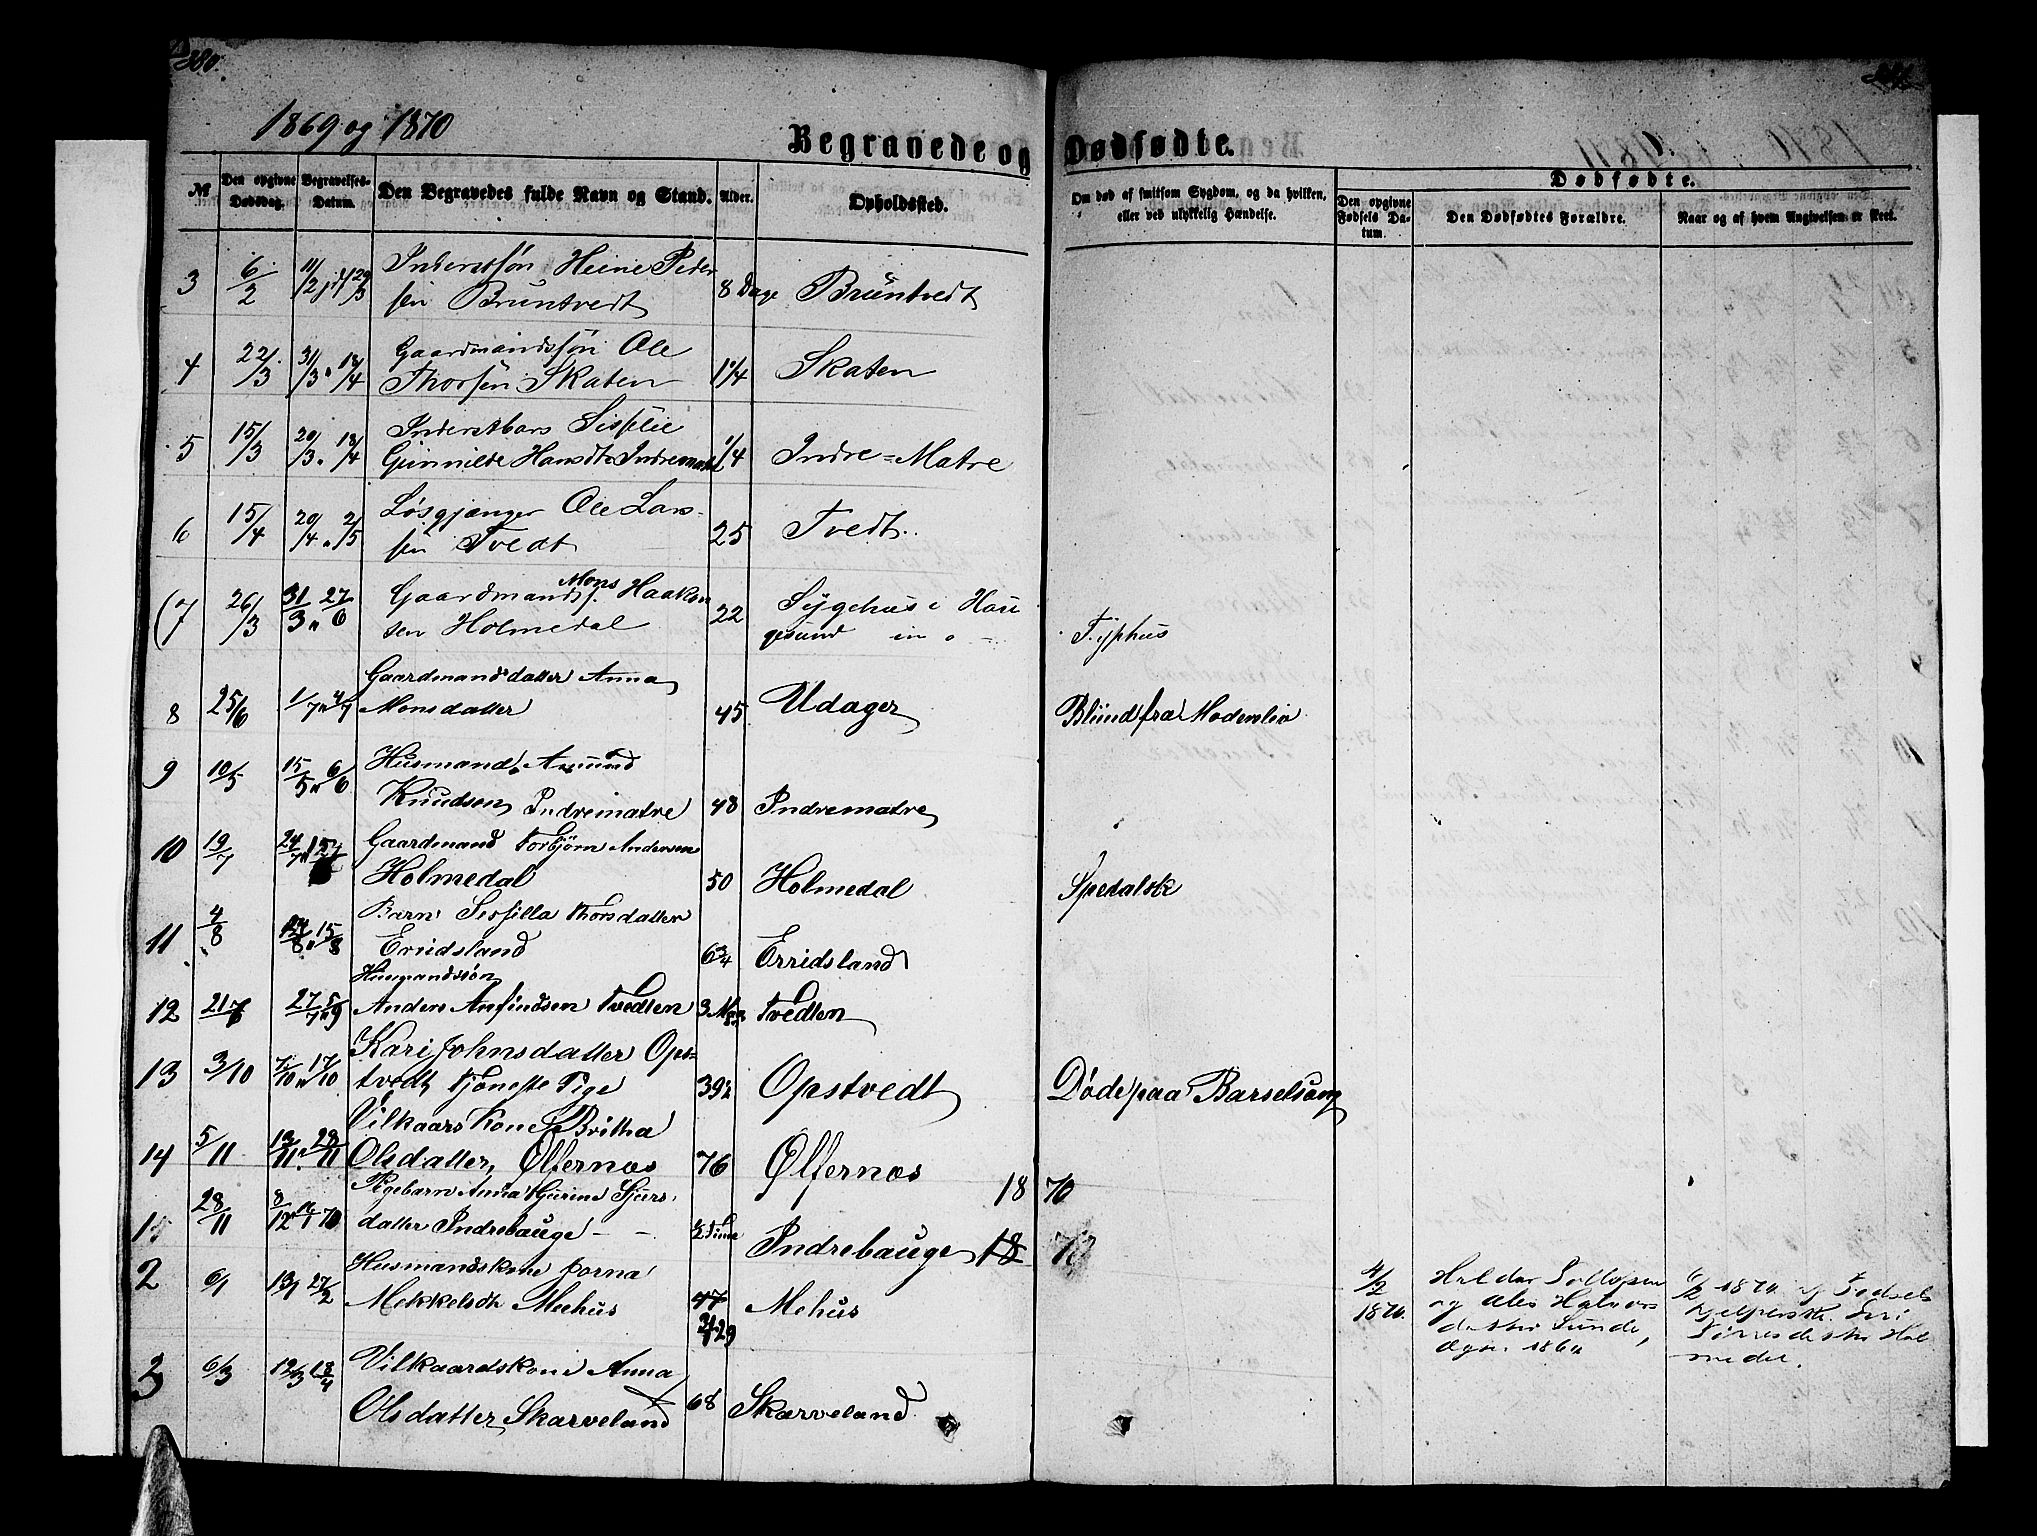 380.
1869 og 1870
Begravede og Dødfødte.
№
Den opgivne Dødsdag.
Begravelses-Datum.
Den Begravedes fulde Navn og Stand.
Alder.
Opholdssted.
Om død af smitsom Sygdom, og da hvilken,
eller ved ulykkelig Hændelse.
Dødfødte.
Den opgivne Fødsels Datum.
Den Dødfødtes Forældre.
Naar og af hvem Angivelsen er skeet.
3 6/2 11/2 29/3 Inderstsøn Heine Peder
sen Bruntvedt 8 Dage Bruntvedt
4 22/3 31/3 18/4 Gaardmandssøn Ole
Thorsen Skaten 1 1/4 Skaten
5 15/3 20/3 18/4 Inderstbarn Sissilie
Gunnilde Hansdtr Indrematre 1/4 Indre=Matre
6 15/4 20/4 2/5 Løsgjænger Ole Lars-
sen Tvedt 25 Tvedt
7 26/3 31/3 27/6 Gaardmands s. Mons Haakon
sen Holmedal 22 Sygehus i Hau
gesund Typhus
8 25/6 1/7 4/7 Gaardmandsdatter Anna
Monsdatter 45 Udager Blind fra Modersliv
9 10/5 15/5 6/6 Husmand Amund
Knudsen Indrematre 48 Indrematre
10 19/7 24/7 Gaardmand Torbjørn Andersen
Holmedal 50 Holmedal Spedalsk
11 4/8 15/8 Barn Sissilla Thorsdatter
Erridsland 6 3/4 Erridsland
Husmandssøn
12 27/7 5/9 Anders Anfindsen Tvedten 3 Tvedten
13 3/10 7/10 17/10 Kari Johnsdatter Ops=
tvedt tjeneste Pige 39 1/2 Opstvedt Døde paa Barselsæng
14 5/11 28/11 Vilkaars Kone Britha
Olsdatter, Ølfernæs 76 Ølfernæs
18 70
15 28/11 8/12 Pigebarn Anna Gurine Sjurs
datter Indrehauge 2 Time Indrehauge 18 70
2 6/1 13/1 27/2 Husmandskone
Mekkelsdtr Mehus 47 29 Mehus
4/2 1870.
Haldor Tollefsen
og Ales Halvors
datter Sunde,
6/2 1870 af Fødsels
hjelpersk.
Hol
medal.
3 6/3 12/3 18/4 Vilkaardskone Anna
Olsdatter Skarveland 68 Skarveland